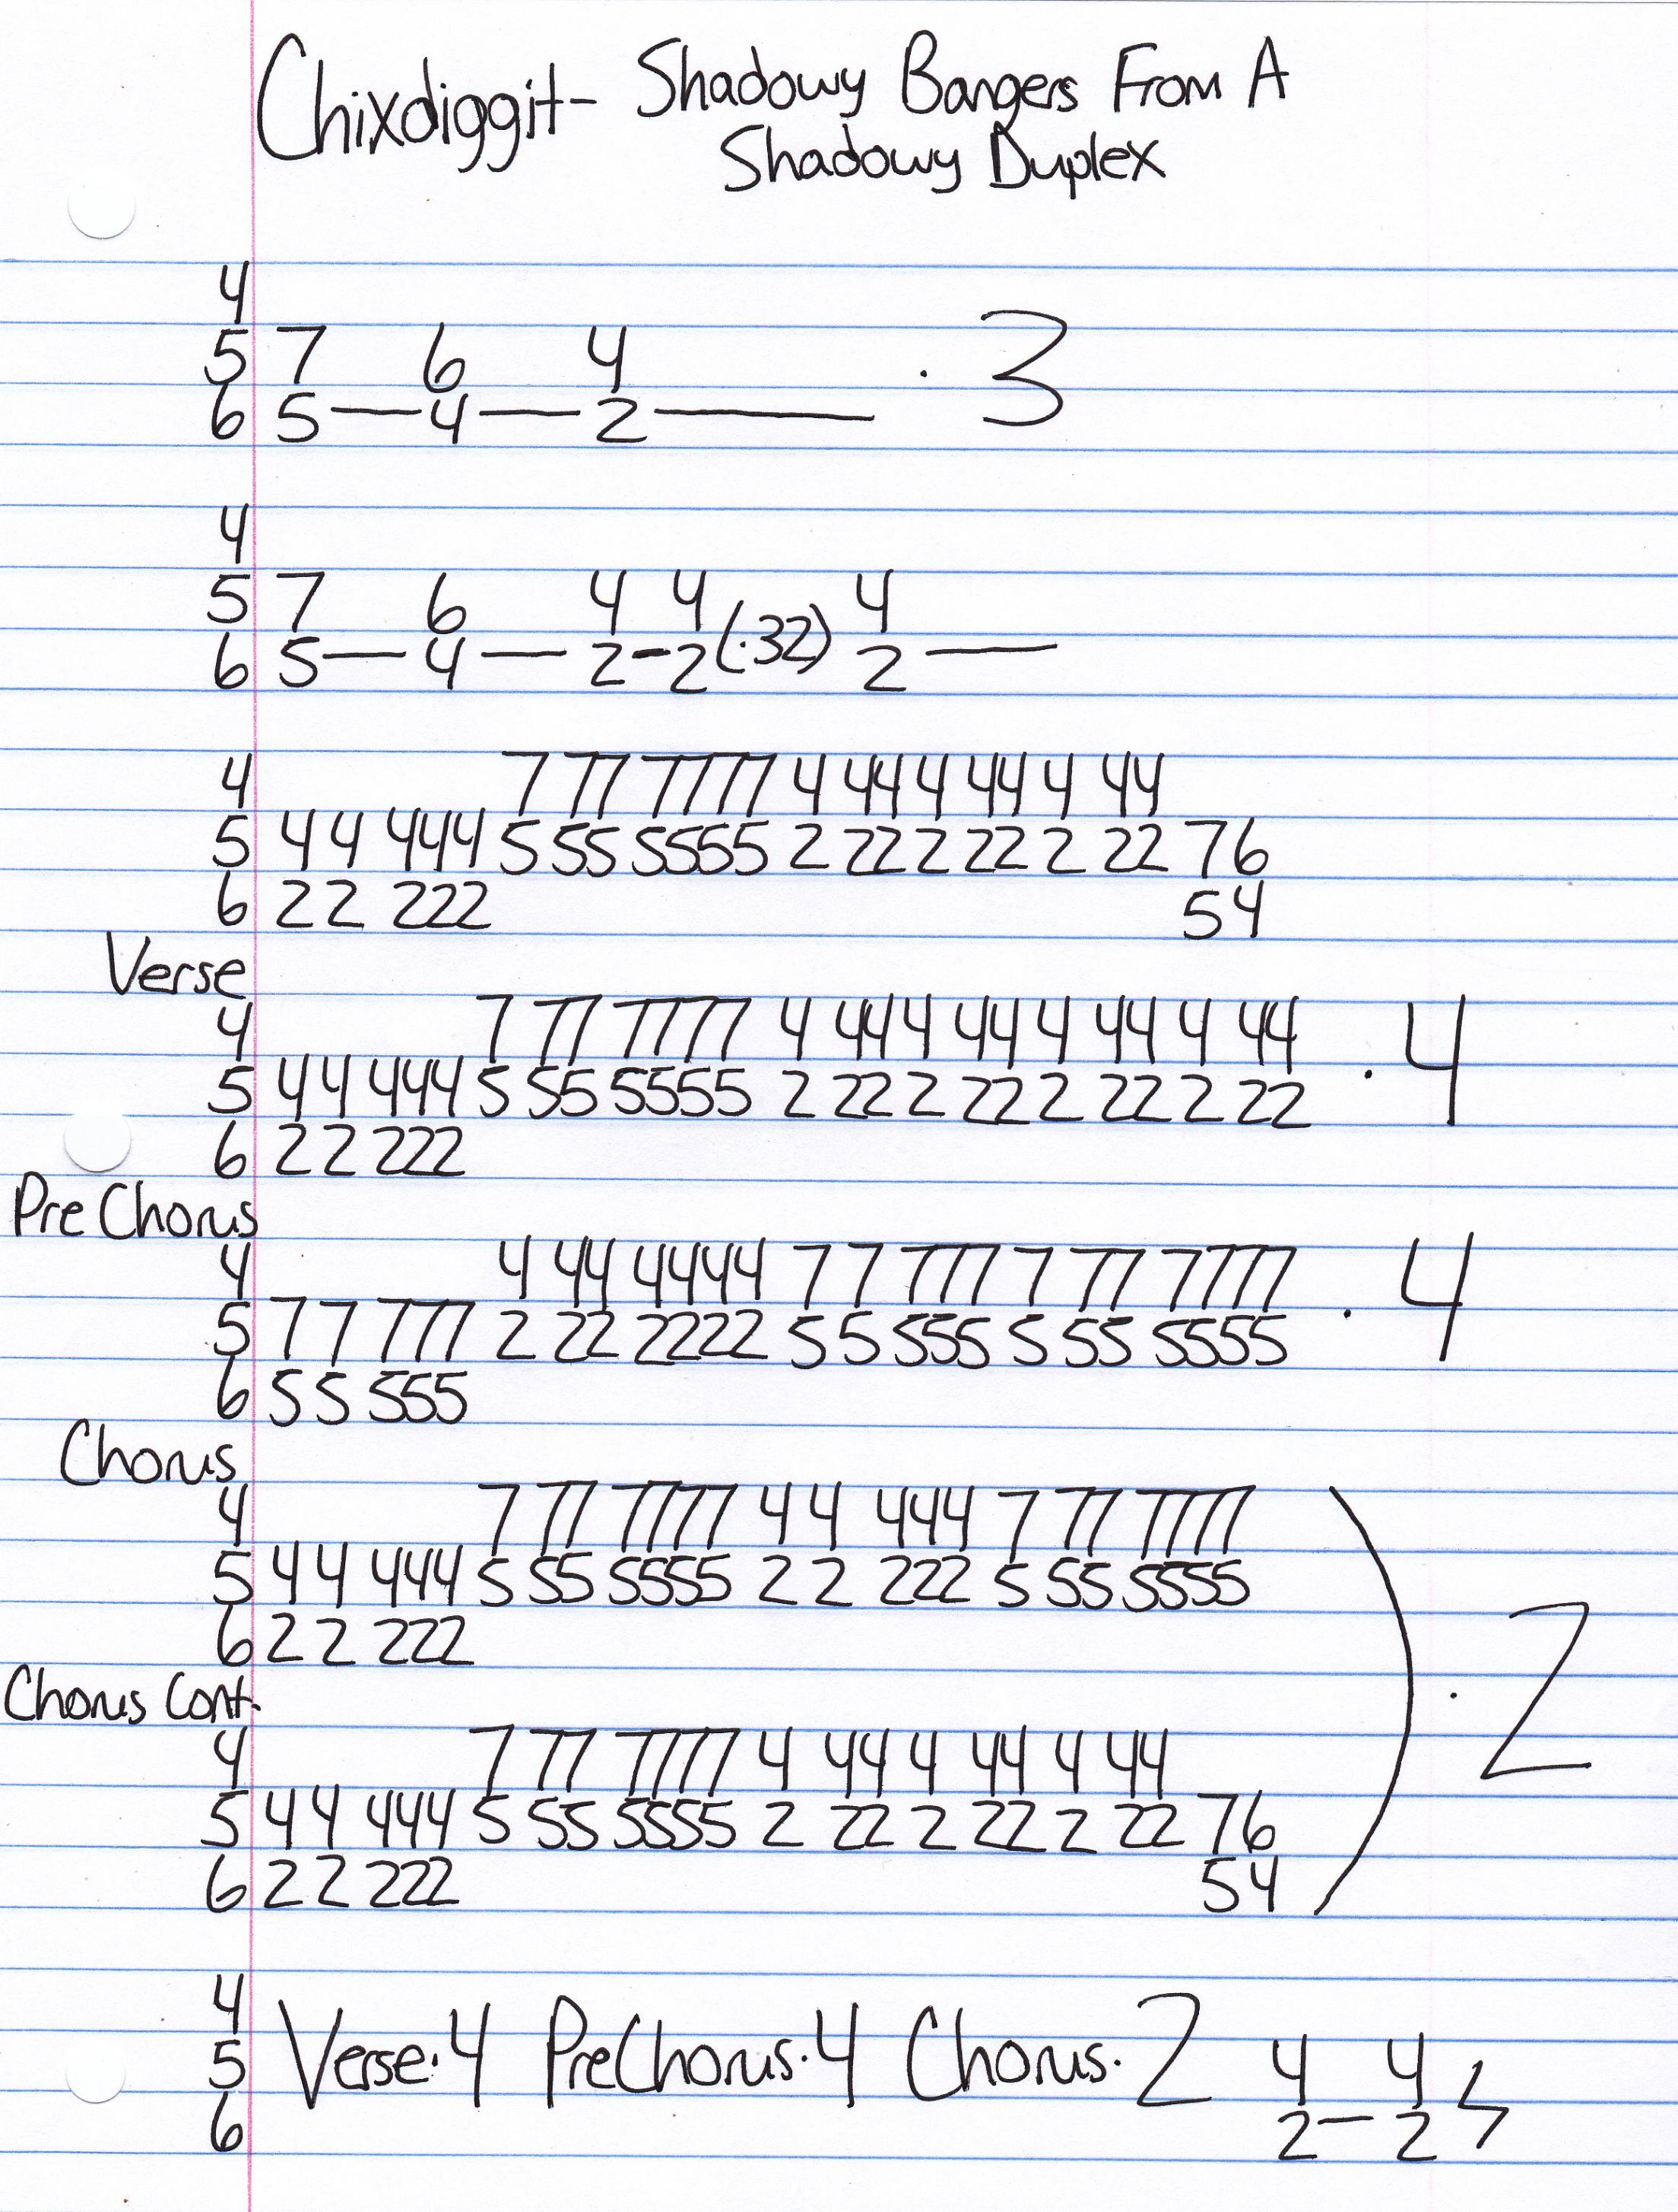 Chixdiggit- Shadowy Bangers From A
Shadowy Duplex
4
5 7 6 4 · 3
6 5—4—2——
4
5 7 6 4 4 4
6 5—4—2-2(·32) 2—
4 7 77 7777 4 44 4 44 4 44
5 44 444 5 55 5555 2 22 2 22 2 22 76
6 22 222 54
Verse
4 7 77 7777 4 44 4 44 4 44 4 44 · 4
5 44 444 5 55 5555 2 22 2 22 2 22 2 22
6 22 222
Pre Chorus
4 4 44 4444 7 7 777 7 77 7777 · 4
5 77 777 2 22 2222 5 5 555 5 55 5555
6 55 555
Chorus
4 7 77 7777 4 4 444 7 77 7777
5 44 444 5 55 5555 2 2 222 5 55 5555
6 22 222
) · 2
Chorus Cont.
4 7 77 7777 4 44 4 44 4 44
5 44 444 5 55 5555 2 22 2 22 2 22 76
6 22 222 54
4
5 Verse·4 PreChorus·4 Chorus·2 4 4
6 2—2